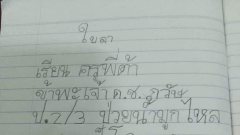 ใบลา
เรียน ครูพี่ต้า
ข้าพระเจ้า ด.ช. ภูวิช
ป.2/3 ป่วยน้ำมูกไหล